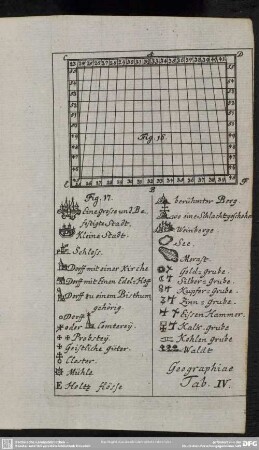 C A D
Fig. 16.
E B F
Fig. 17.
Eine grosse und Be
festigte Stadt.
Kleine Stadt.
Schloss.
Dorff mit einer Kirche
Dorff mit Einen Edel-
Dorff zu einem Bisthum
gehörig.
Dorff
oder Comterey.
Probstey.
Geistliche güter.
Closter.
Mühle.
E Holtz flösse
berühmter Berg.
wo eine Schlacht geschehen
Weinberge
See.
Morast.
Gold-grube.
Silber-grube.
Kupfer-grube.
Zinn-grube.
Eisen Hammer.
Kalk grube
Kohlen grube
Waldt
Geographiae
Tab. IV.
DFG